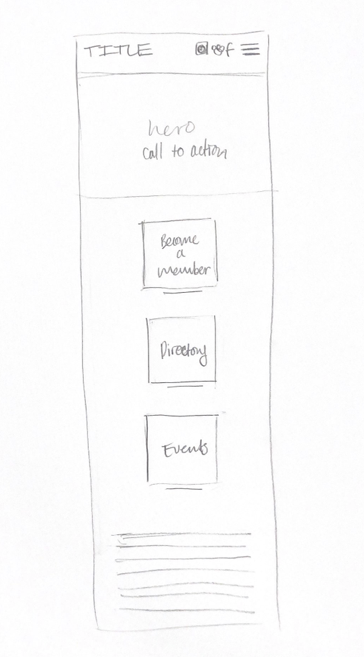 TITLE f
hero
call to action
Become
a
member
Directory
Events